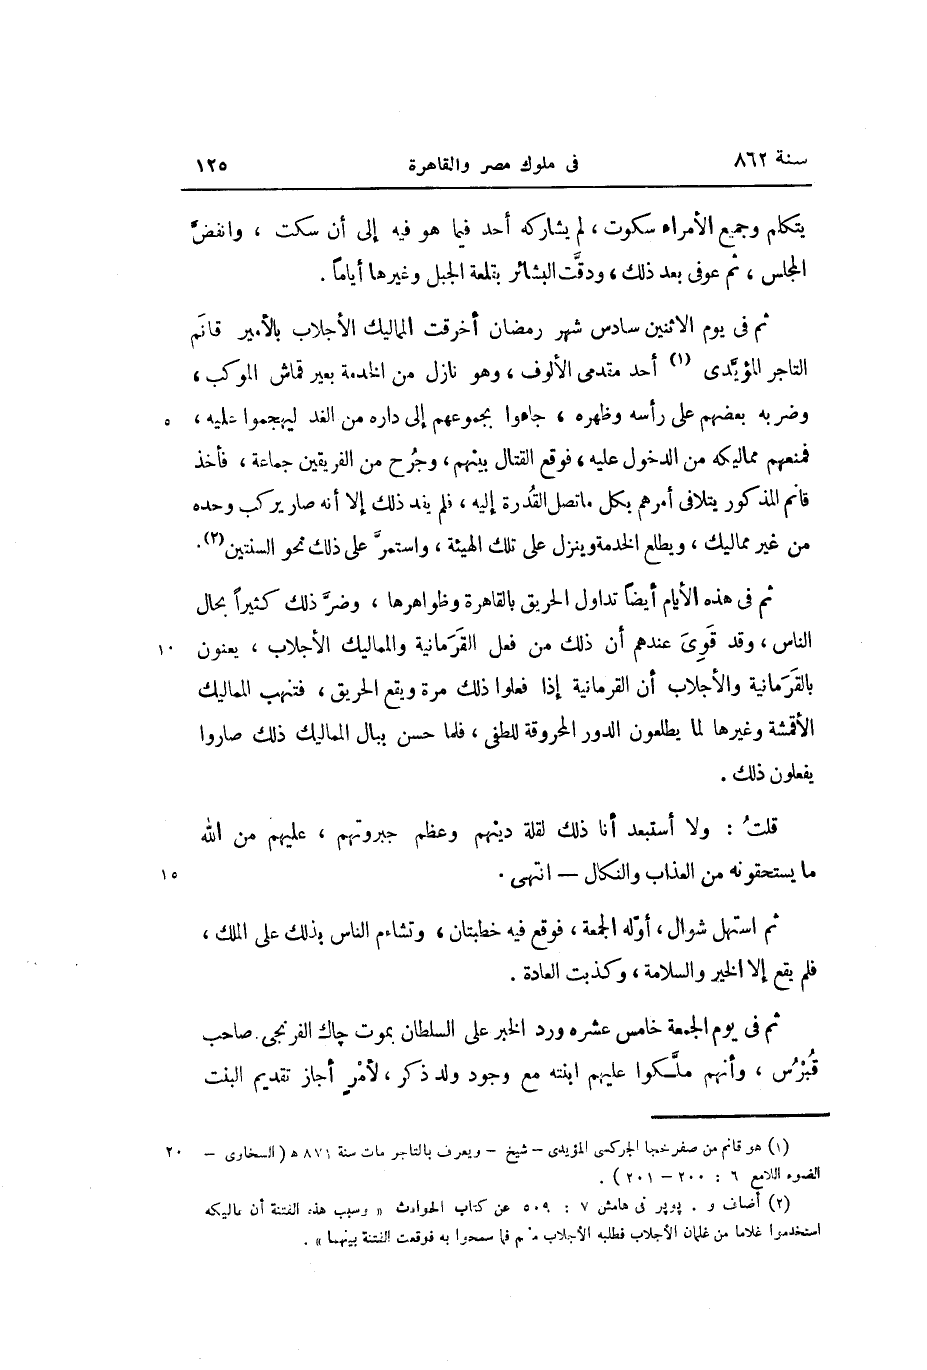 سنة ٨٦٢ فى ملوك مصر والقاهرة ١٢٥
يتكلم وجميع الأمراء سكوت ، لم يشاركه أحد فيما هو فيه إلى أن سكت ، وانفضَّ
المجلس ، ثم عوفى بعد ذلك ، ودقَّت البشائر بقلعة الجبل وغيرها أياماً .
ثم فى يوم الاثنين سادس شهر رمضان أخرقت المماليك الأجلاب بالأمير قانَم
التاجر المؤيَّدى (١) أحد مقدمى الألوف ، وهو نازل من الخدمة بغير قماش الموكب ،
وضربه بعضهم على رأسه وظهره ، جاءوا بجموعهم إلى داره من الغد ليهجموا عليه ، ٥
فمنعهم مماليكه من الدخول عليه ، فوقع القتال بينهم ، وجُرح من الفريقين جماعة ، فأخذ
قانم المذكور يتلافى أمرهم بكل ماتصل القُدرة إليه ، فلم يفد ذلك إلا أنه صار يركب وحده
من غير مماليك ، ويطلع الخدمة وينزل على تلك الهيئة ، واستمرَّ على ذلك نحو السنتين (٢).
ثم فى هذه الأيام أيضاً تداول الحريق بالقاهرة وظواهرها ، وضرَّ ذلك كثيراً بحال
الناس ، وقد قَوِىَ عندهم أن ذلك من فعل القَرَمانية والمماليك الأجلاب ، يعنون ١٠
بالقَرَمانية والأجلاب أن القرمانية إذا فعلوا ذلك مرة ويقع الحريق ، فتنهب المماليك
الأقمشة وغيرها لما يطلعون الدور المحروقة للطفى ، فلما حسن ببال المماليك ذلك صاروا
يفعلون ذلك .
قلتُ : ولا أستبعد أنا ذلك لقلة دينهم وعظم جبروتهم ، عليهم من الله
ما يستحقونه من العذاب والنكال — انتهى . ١٥
ثم استهل شوال ، أوّله الجمعة ، فوقع فيه خطبتان ، وتشاءم الناس بذلك على الملك ،
فلم يقع إلا الخير والسلامة ، وكذبت العادة .
ثم فى يوم الجمعة خامس عشره ورد الخبر على السلطان بموت چاك الفرنجى صاحب
قُبْرُس ، وأنهم ملَّكوا عليهم ابنته مع وجود ولد ذكر ، لأمْرٍ أجاز تقديم البنت
(١) هو قانم من صفر خجا الجركسى المؤيدى – شيخ – ويعرف بالتاجر مات سنة ٨٧١ ه ( السخاوى – ٢٠
الضوء اللامع ٦ : ٢٠٠ – ٢٠١ ) .
(٢) أضاف و . پوپر فى هامش ٧ : ٥٠٩ عن كتاب الحوادث « وسبب هذه الفتنة أن مماليكه
استخدموا غلاما من غلمان الأجلاب فطلبه الأجلاب منهم فما سمحوا به فوقعت الفتنة بينهما » .